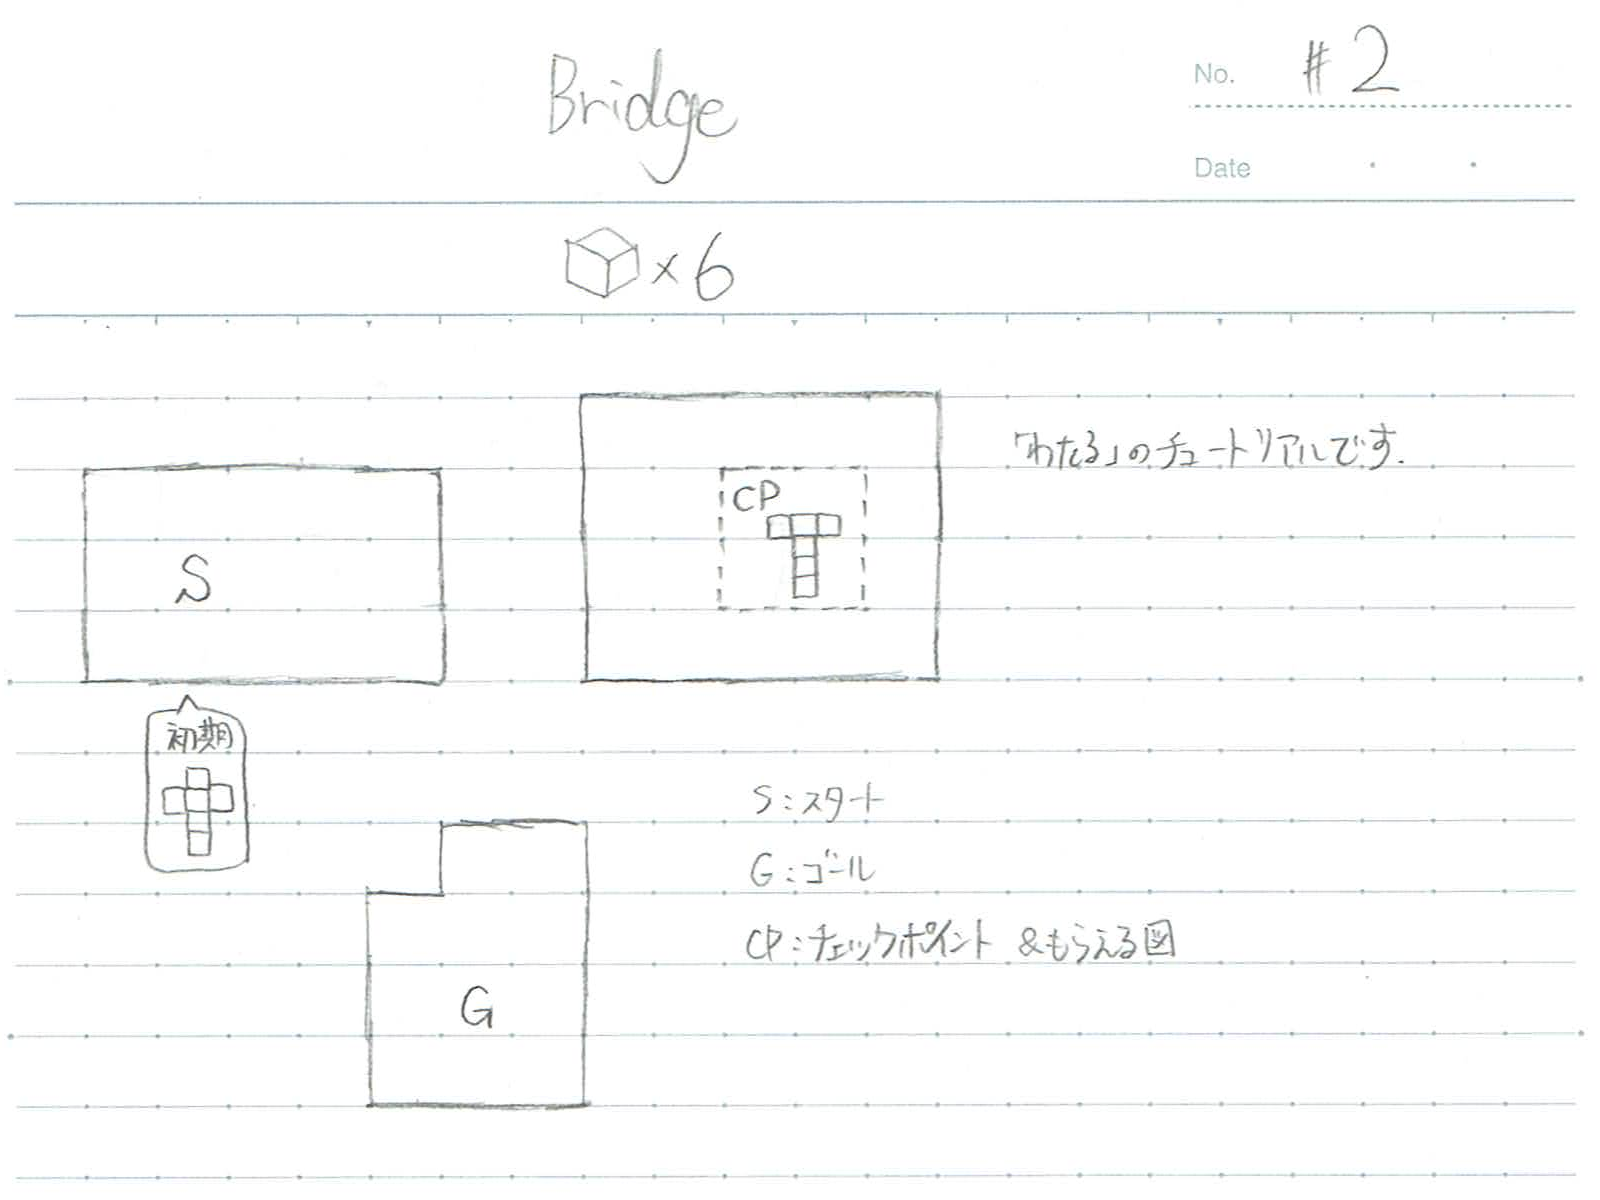 Bridge
No. #2
Date
×6
「わたる」のチュートリアルです.
CP
S
初期
S:スタート
G:ゴール
CP:チェックポイント &もらえる図
G